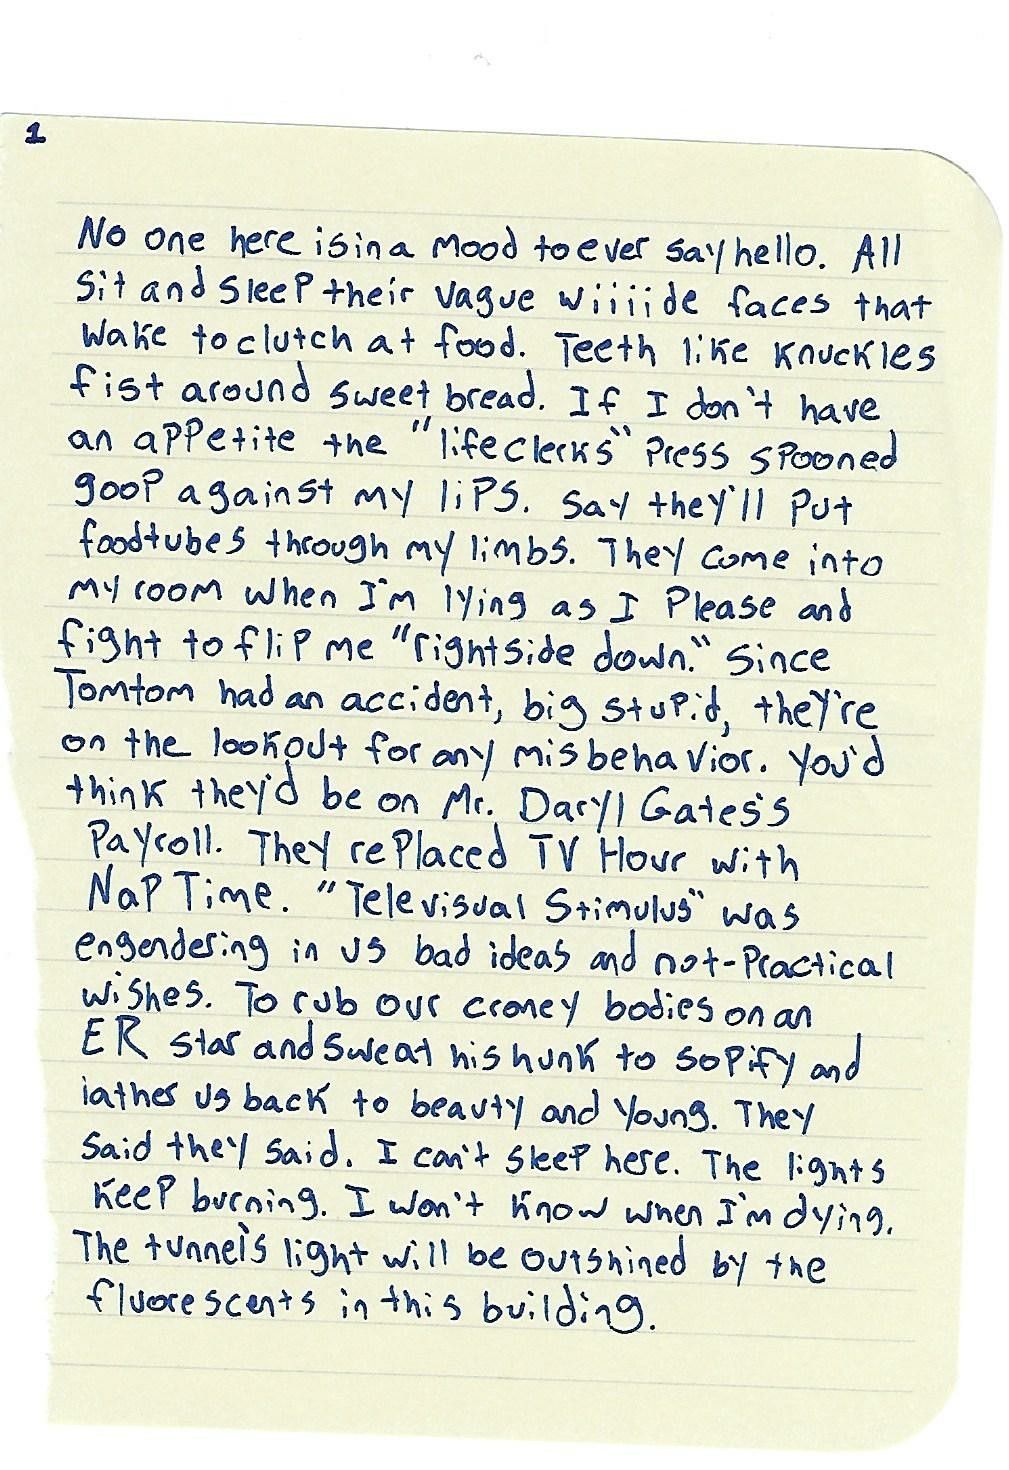 1
No one here is in a mood to ever say hello. All
sit and sleep their vague wiiiide faces that
wake to clutch at food. Teeth like knuckles
fist around sweet bread. If I don't have
an appetite the "lifeclerks" press spooned
goop against my lips. Say they'll put
foodtubes through my limbs. They come into
my room when I'm lying as I please and
fight to flip me "rightside down." Since
Tomtom had an accident, big stupid, they're
on the lookout for any misbehavior. You'd
think they'd be on Mr. Daryl Gates's
payroll. They replaced TV Hour with
Nap Time. "Televisual Stimulus" was
engendering in us bad ideas and not-practical
wishes. To rub our croney bodies on an
ER star and sweat his hunk to sopify and
lather us back to beauty and young. They
said they said. I can't sleep here. The lights
keep burning. I won't know when I'm dying.
The tunnel's light will be outshined by the
fluorescents in this building.